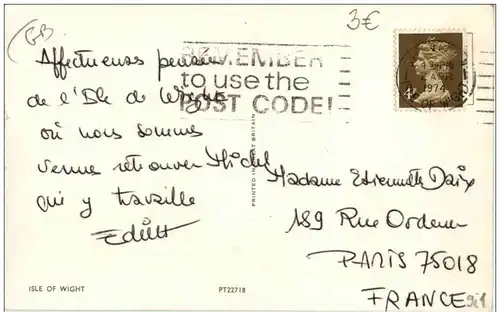 GB
3€
REMEMBER
to use the
POST CODE!
1974
OF WIGHT
Affectueuses pensées
de l'Ile de Wight
où nous sommes
venus retrouver Michel
qui y travaille
Edith
PRINTED IN GREAT BRITAIN
Madame
189 Rue Ordener
PARIS 75018
FRANCE
ISLE OF WIGHT
PT22718